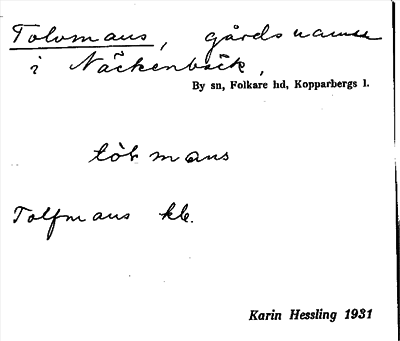 Tolvmans, gårdsnamn
i Näckenbäck,
By sn, Folkare hd, Kopparbergs l.
tòlmans
Tolfmans kb.
Karin Hessling 1931